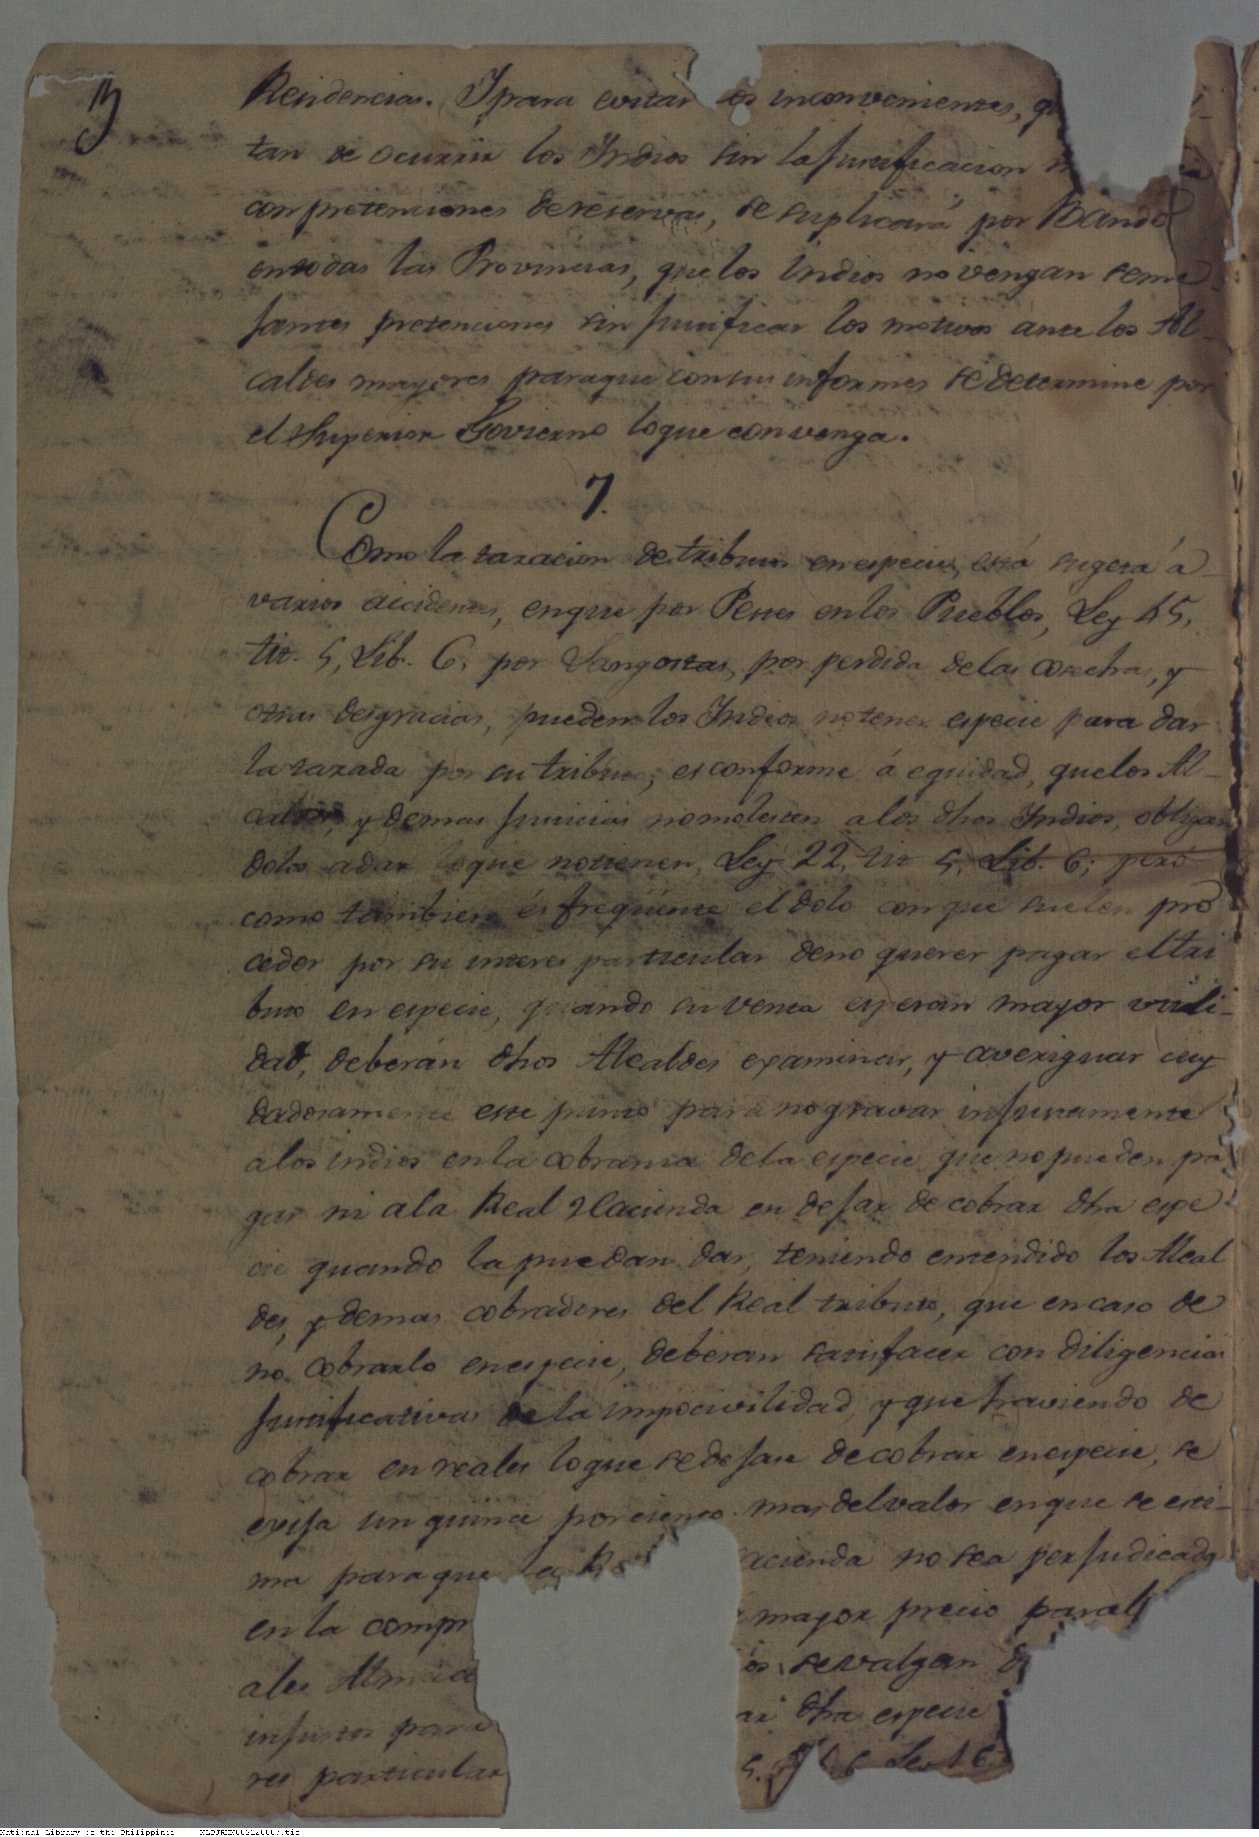 Residencias. Y para evitar los inconvenientes, q
tan de ocurrir los Indios sin la justificacion
con pretenciones de reservas, se suplicará por Bando
en todas las Provincias, que los indios no vengan seme
jantes pretenciones sin justificar los motivos ante los Al-
caldes mayores para que con sus informes se determine por
el Superior Govierno lo que convenga.
7.
Como la taxacion de tributos en especies, está sugeta á
varios accidentes, en que por Pestes en los Pueblos, Ley 45,
tit. 5, Lib. 6, por Langostas, por perdida de las cosechas, y
otras desgracias, pueden los Indios no tener especie para dar
la taxada por su tributo, es conforme á equidad, que los Al-
caldes, y demas Justicias no molesten a los dhos Indios, obligan
dolos a dar lo que no tienen, Ley 22, tit 5, Lib. 6; pero
como tambien és freqüente el dolo con que suelen pro
ceder por su interes particular de no querer pagar el tri
buto en especie, quando su venta esperan mayor utili-
dad, deberán dhos Alcaldes examinar, y averiguar cuy
dadosamente este punto para no gravar injustamente
a los indios en la cobranza de la especie que no pueden pa
gar ni a la Real Hacienda en dejar de cobrar dha espe
cie quando la puedan dar, teniendo entendido los Alcal
des, y demas cobradores del Real tributo, que en caso de
no cobrarlo en especie, deberan satisfacer con diligencias
justificativas de la impocivilidad, y que haviendo de
cobrar en reales lo que se dejare de cobrar en especie, se
exija un quince por ciento mas del valor en que se esti-
ma para que la R acienda no sea perjudicada
en la comp mayor precio para
ales Almace os se valgan d
injustos para ar dha especie
res particular 5. 6 Ley 16